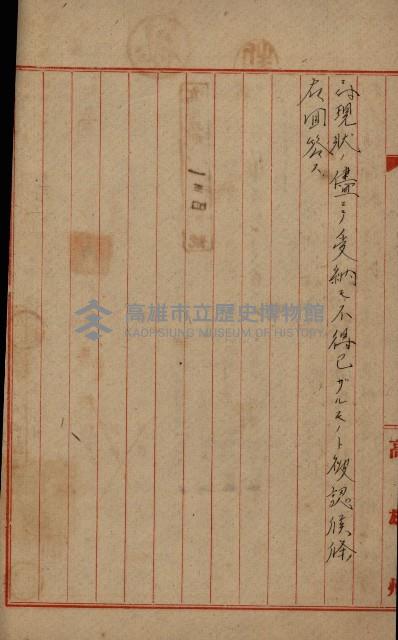 高雄州
ニ付現状ノ儘ニテ受納モ不得已ザルモノト被認候條
右回答ス
高雄市立歷史博物館
KAOHSIUNG MUSEUM OF HISTORY